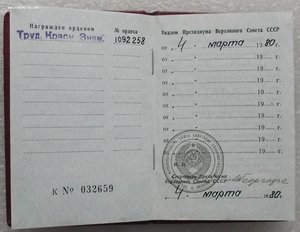 Награжден орденом
№ ордена
Труд. Красн. Знам.
1092258
К № 032659
Указом Президиума Верховного Совета СССР
от „4" марта 1980 г.
от 19 г.
от 19 г.
от 19 г.
от 19 г.
от 19 г.
от 19 г.
от 19 г.
М. П.
Секретарь Президиума
Верховного Совета СССР
„4" марта 1980 г.